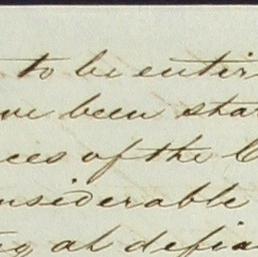 to be entir
ve been sta
ces of the C
nsiderable
at defia